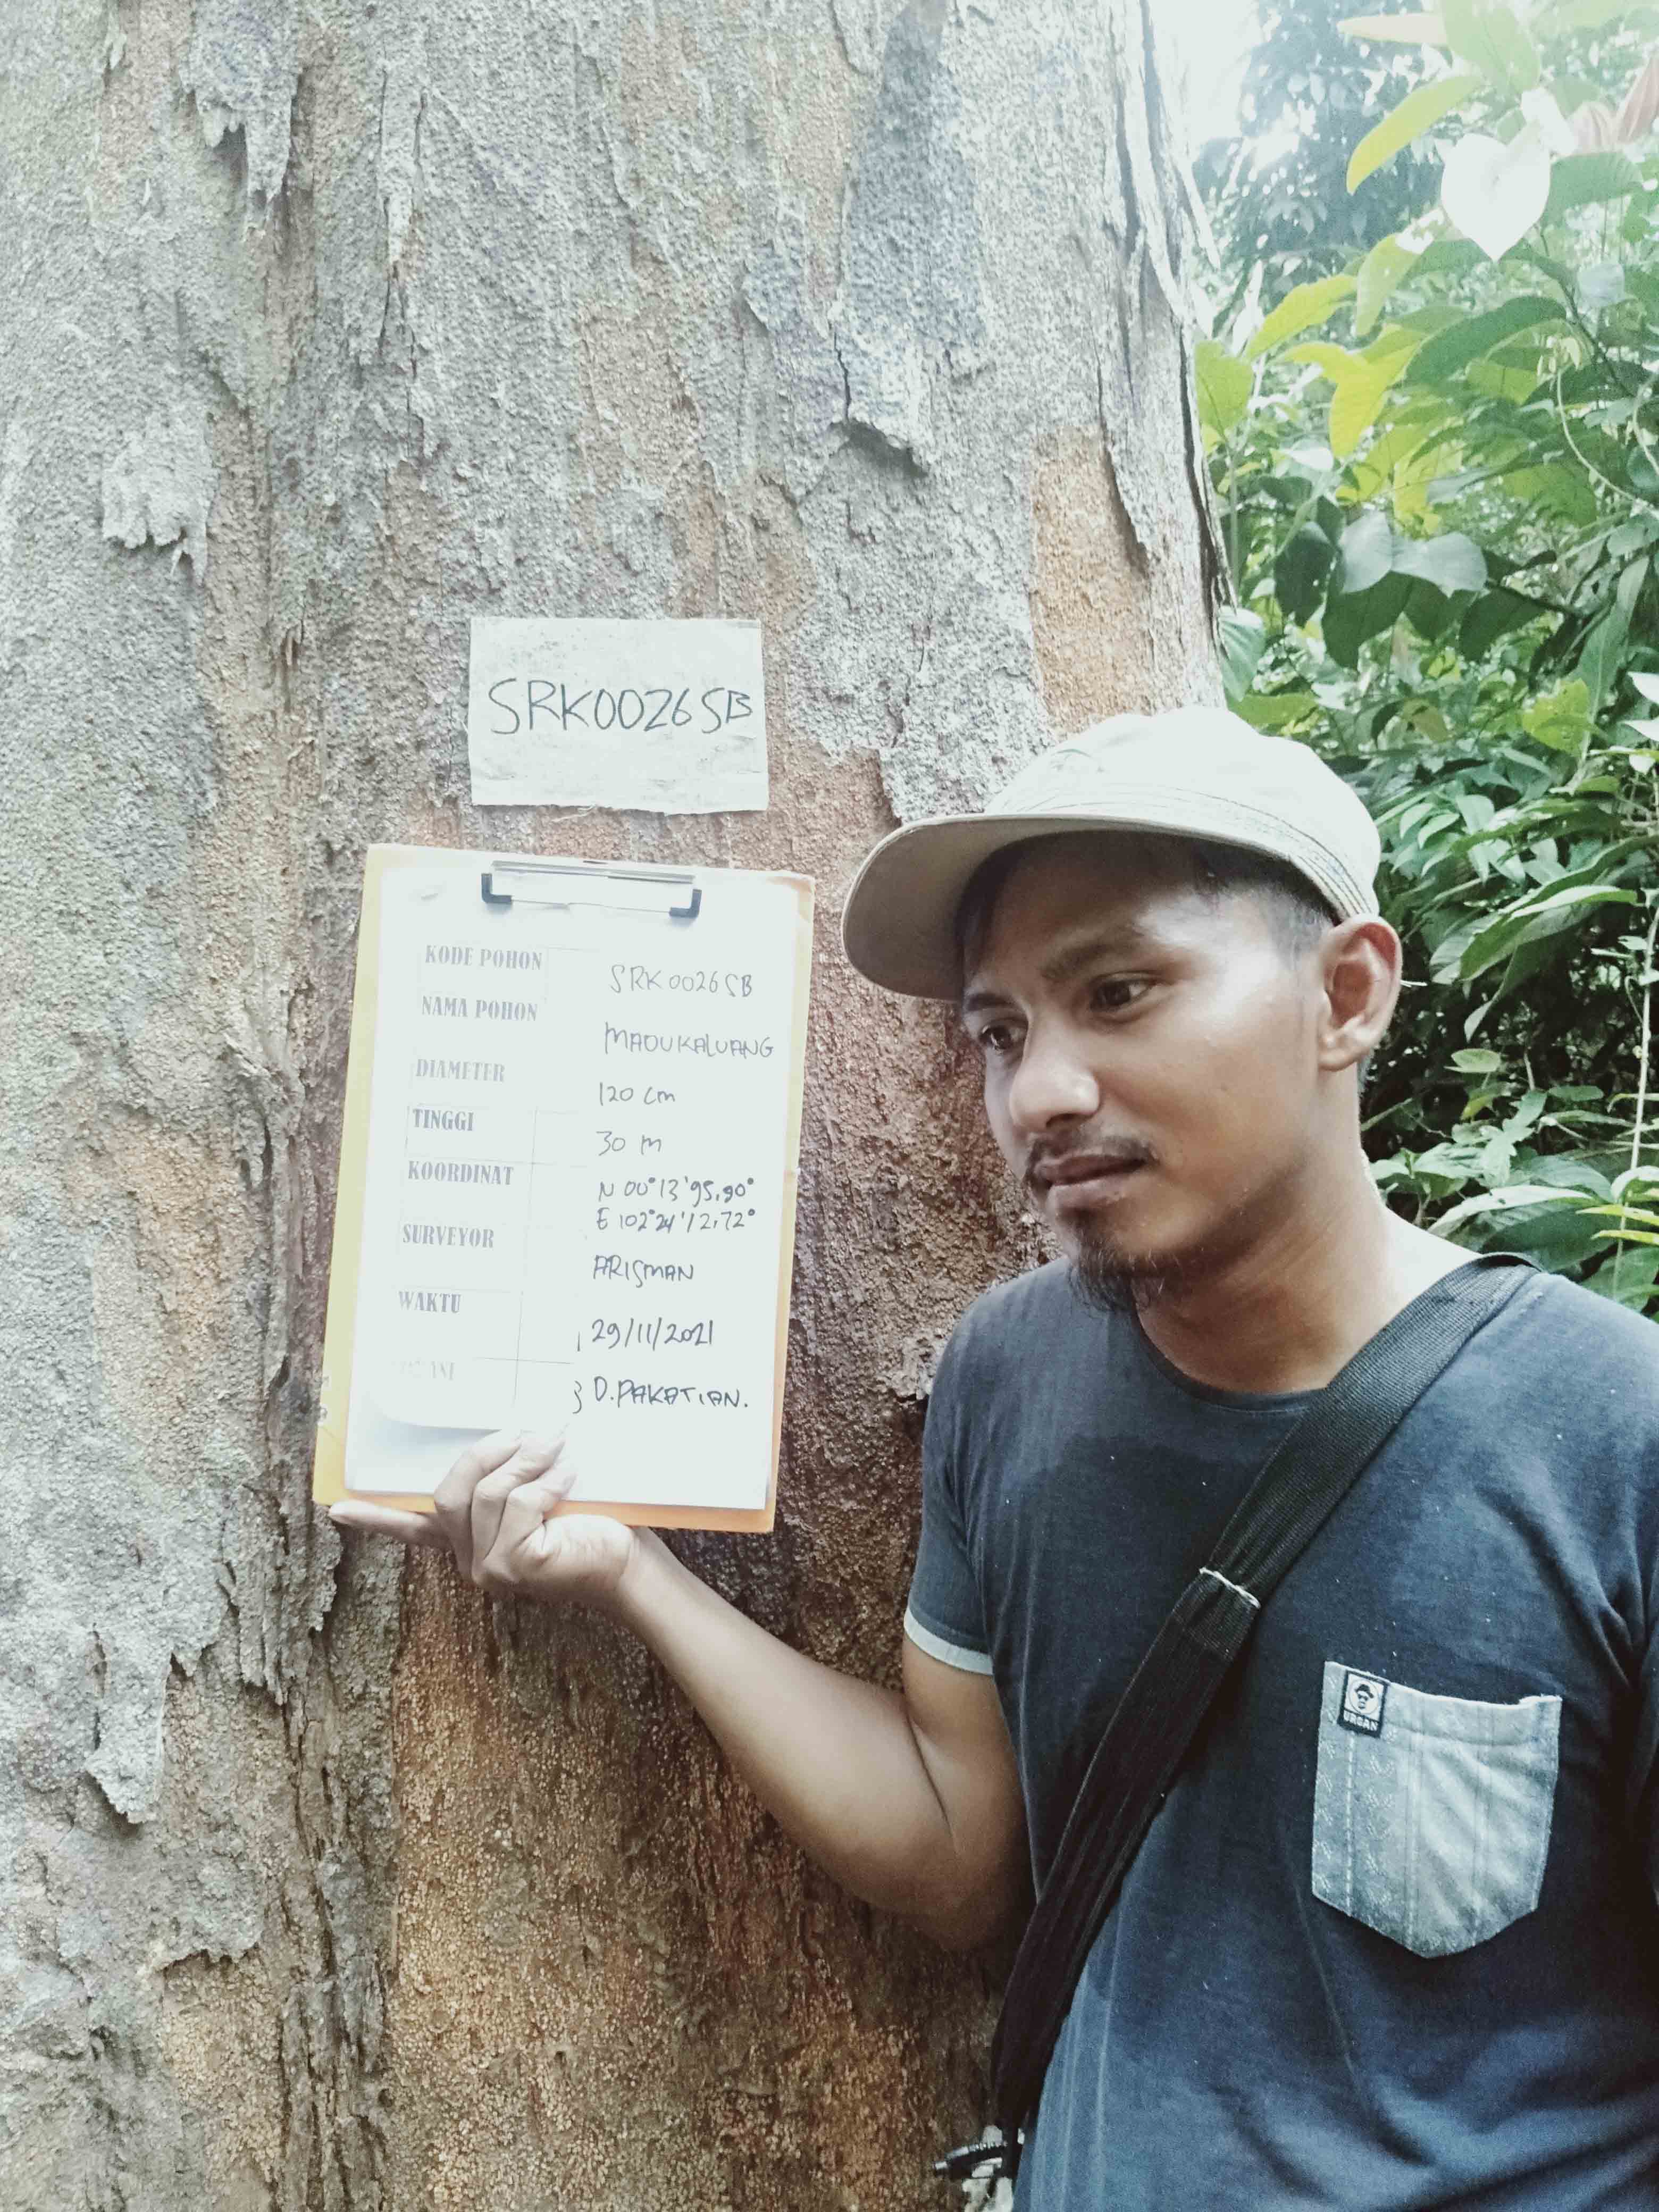 SRK0026SB
KODE POHON SRK0026SB
NAMA POHON MADUKALUANG
DIAMETER 120 cm
TINGGI 30 m
KOORDINAT N 00°13'95,90°
E 102°24'12,72°
SURVEYOR ARISMAN
WAKTU 29/11/2021
D.PAKATIAN.
URBAN